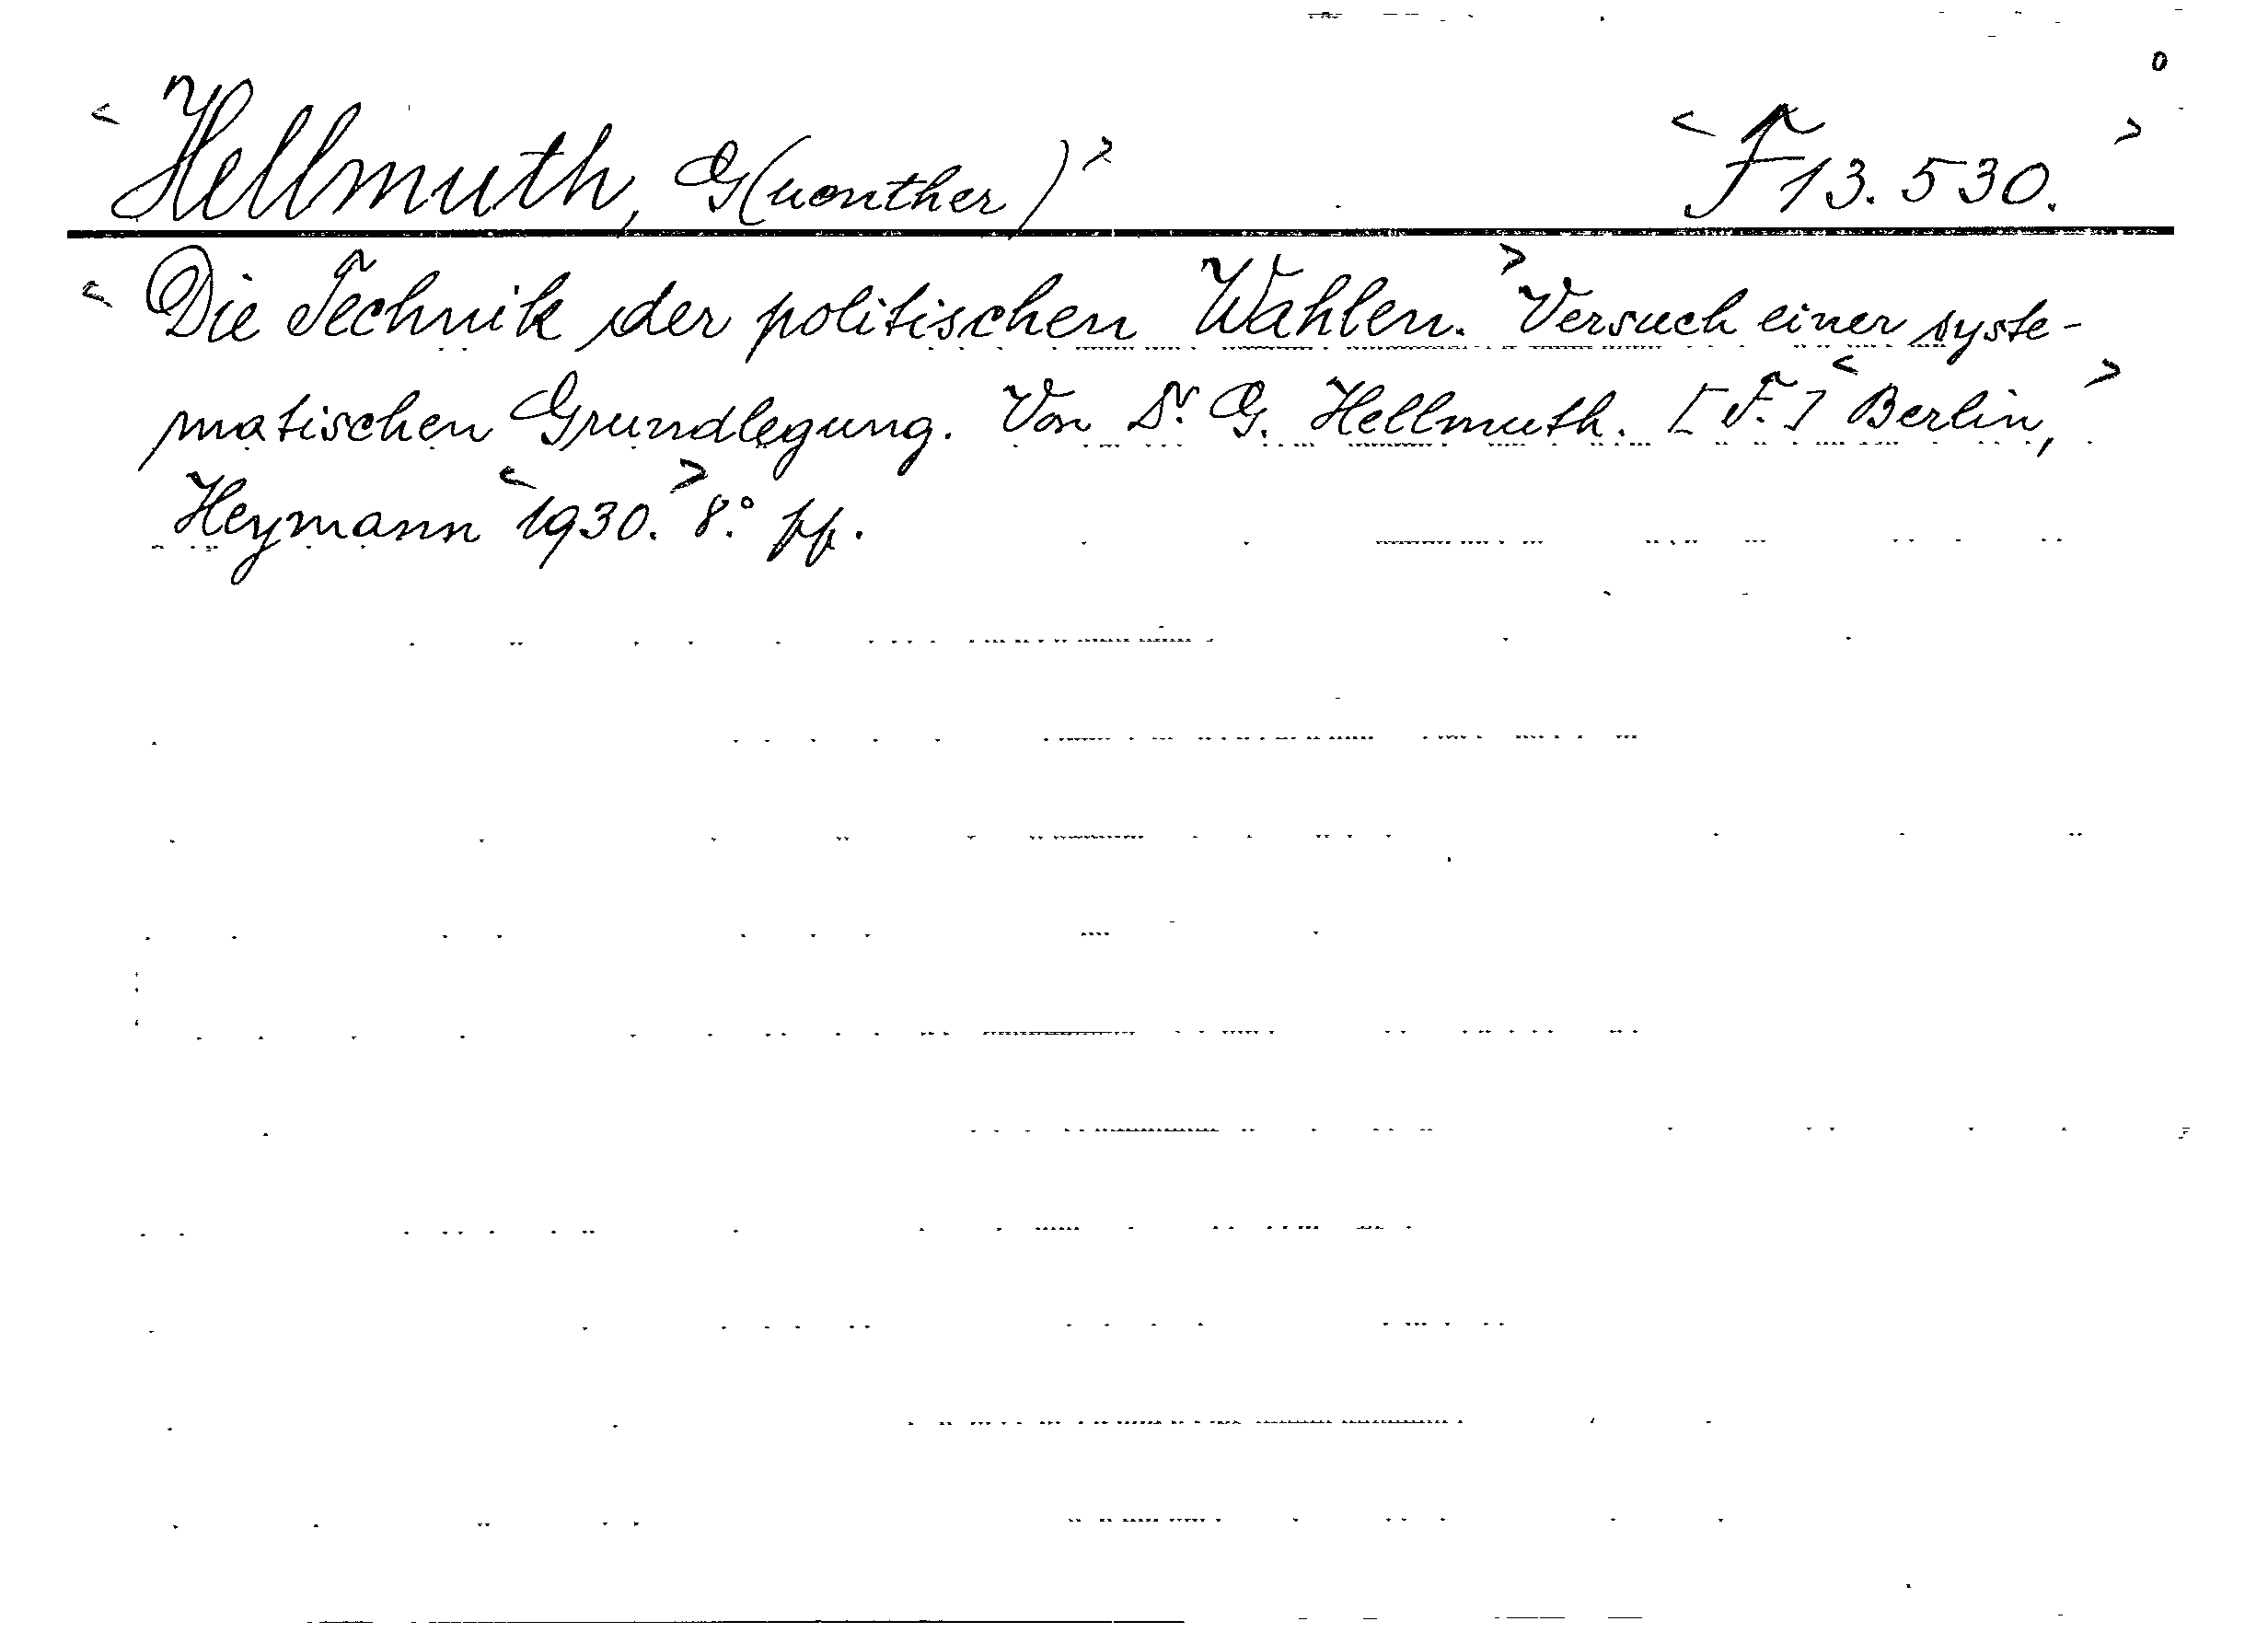 <Hellmuth, G(uenther)> <F 13.530.>
<Die Technik der politischen Wahlen.> Versuch einer syste-
matischen Grundlegung. Von Dr. G. Hellmuth. [F.] <Berlin,>
Heymann <1930.> 8.° pp.